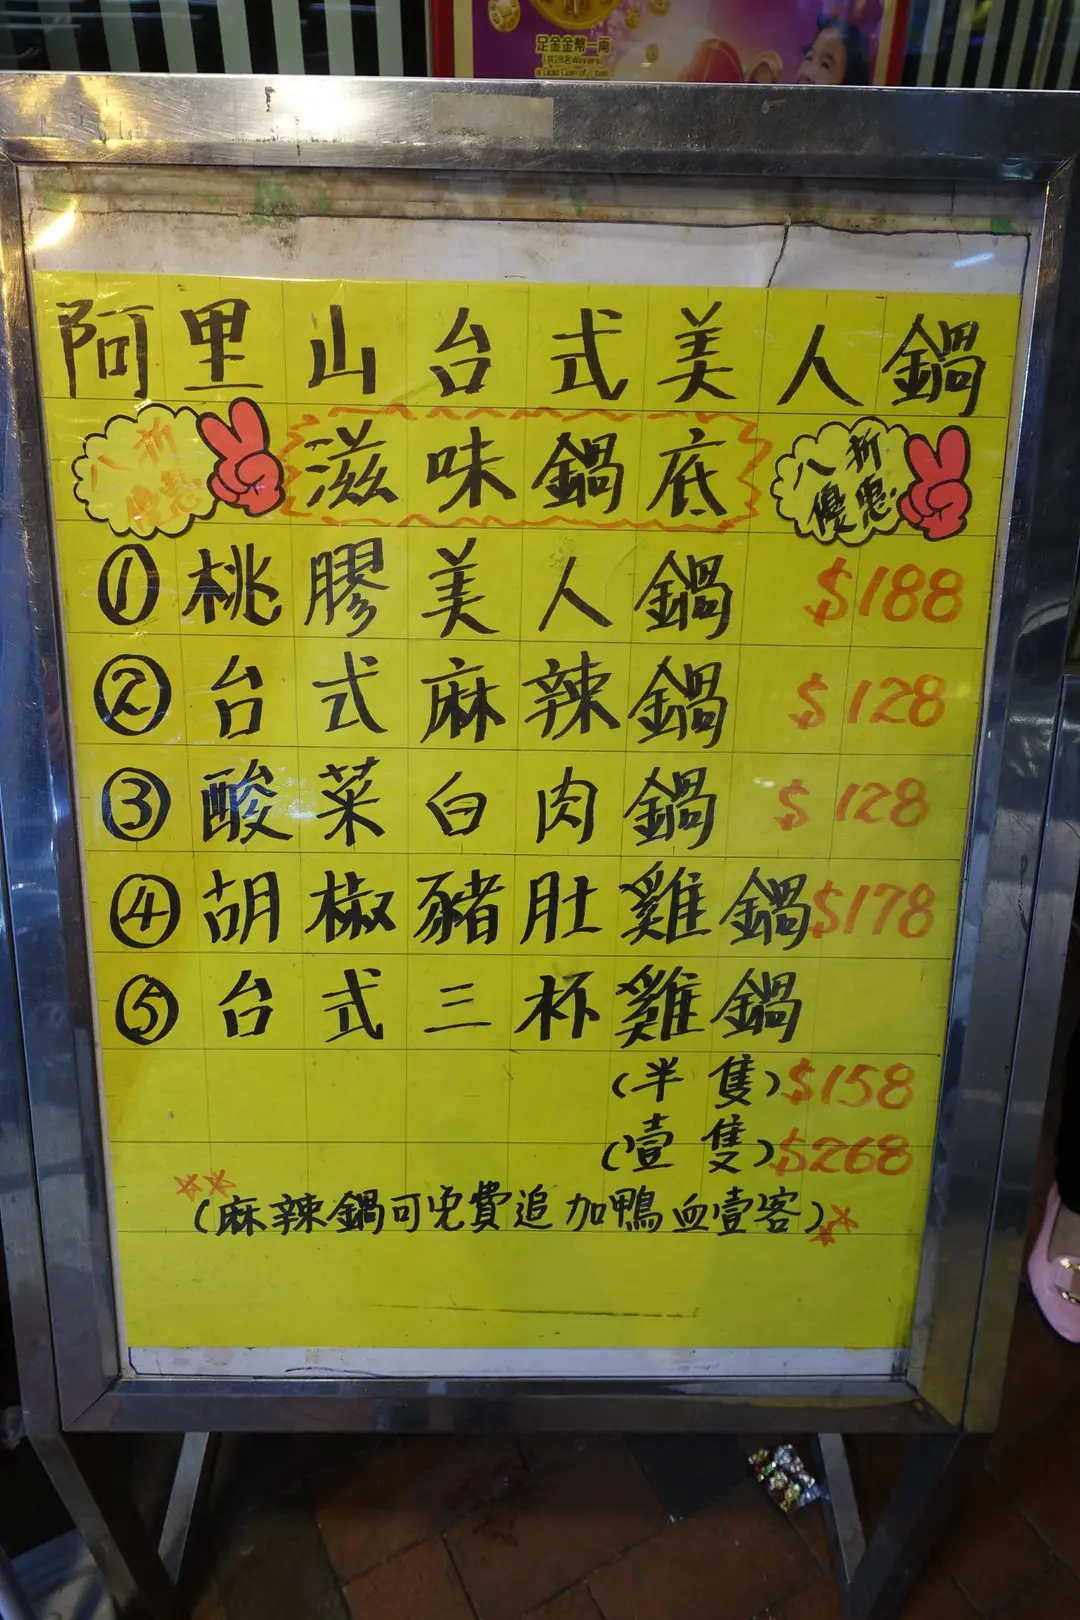 足金金幣一両
阿里山台式美人鍋
八折
優惠
滋味鍋底
八折
優惠
① 桃膠美人鍋 $188
② 台式麻辣鍋 $128
③ 酸菜白肉鍋 $128
④ 胡椒豬肚雞鍋 $178
⑤ 台式三杯雞鍋
(半隻) $158
(壹隻) $268
(麻辣鍋可免費追加鴨血壹客)